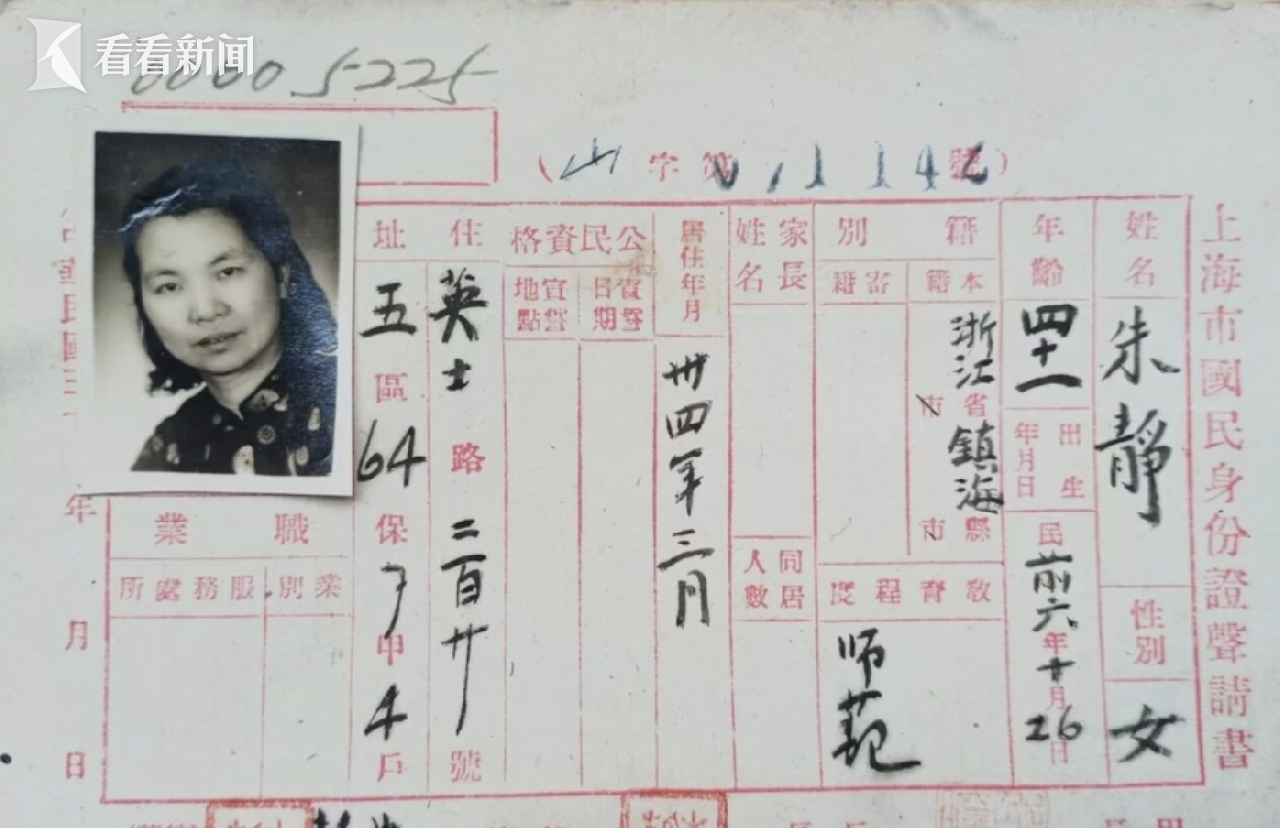 看看新闻
00005225
上海市國民身份證聲請書
(山字第 號)
姓名
朱靜
性別
女
年齡
四十一
出生
年月日
民前六年十月26日
籍別
本籍
浙江省市
鎮海縣市
寄籍
教育程度
师范
家長姓名
同居人數
居住年月
卅四年三月
公民資格
宣誓日期
宣誓地點
住址
英士路二百廿 號
五區64保 甲4戶
職業
業別
服務處所
年月日